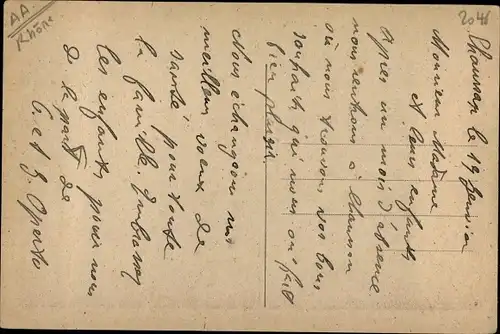 AA.
Rhône
2046
Chaussan le 19 Janvier
Monsieur Madame
et leurs enfants
Après un mois d'absence
nous rentrons à Chaussan
où nous trouvons vos bons
souhaits qui nous on fait
bien plaisir
Nous échangeons nos
meilleurs voeux de
santé pour toute
la famille. Embrassez
les enfants pour nous
de la part de
C. et J.